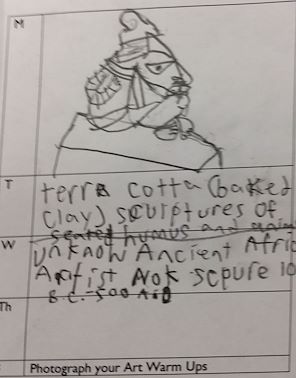 M
T
terra cotta (baked
clay) sculptures of
seated humus and
W
unknow Ancient Afric
Artist Nok scpure 10
Th
B.C.-500 A.D
Photograph your Art Warm Ups